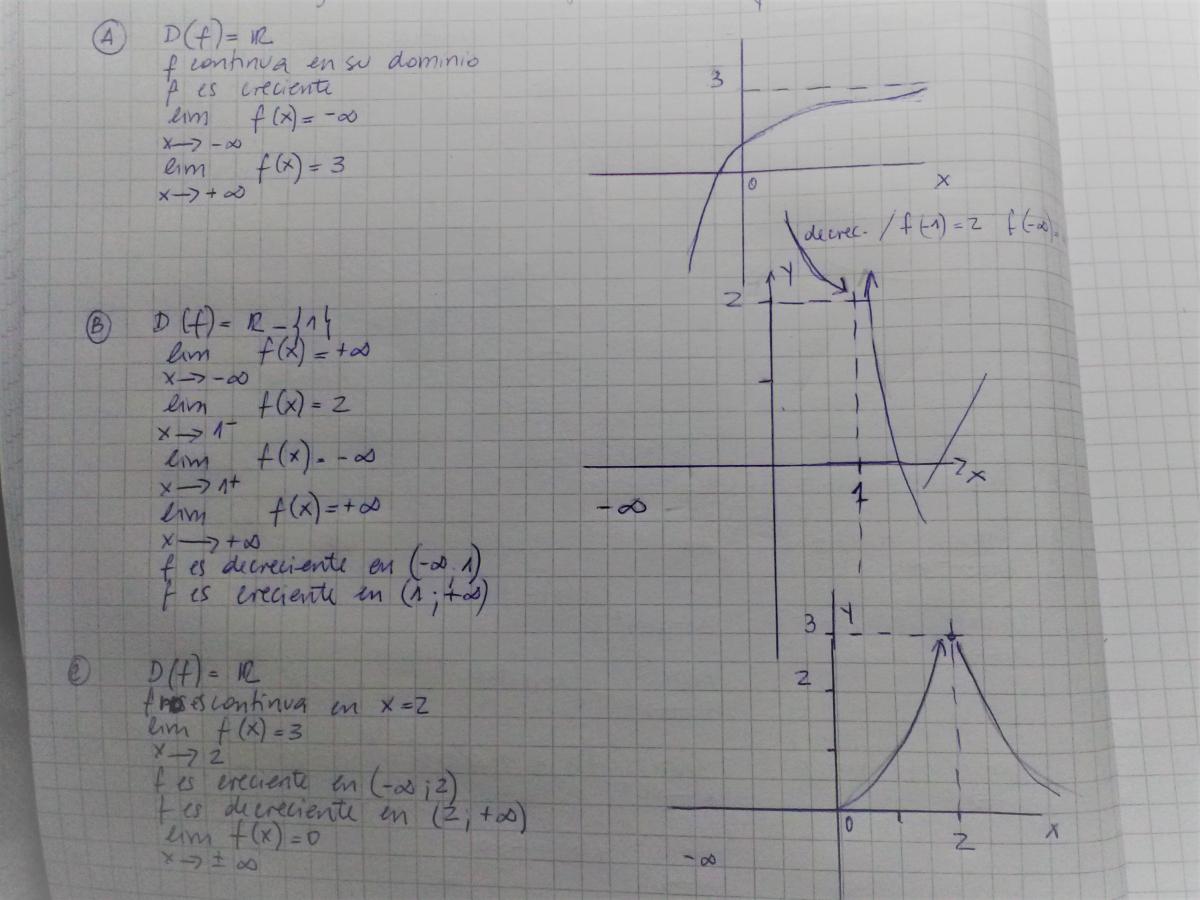 A
D(f) = ℝ
f continua en su dominio
f es creciente
lim f(x) = -∞
x → -∞
lim f(x) = 3
x → +∞
3
0
x
decrec. / f(-1) = 2 f(-∞) =
Y
2
1
x
-∞
B
D(f) = ℝ - {1}
lim f(x) = +∞
x → -∞
lim f(x) = 2
x → 1⁻
lim f(x) = -∞
x → 1⁺
lim f(x) = +∞
x → +∞
f es decreciente en (-∞. 1)
f es creciente en (1 ; +∞)
C
D(f) = ℝ
f no es continua en x = 2
lim f(x) = 3
x → 2
f es creciente en (-∞ ; 2)
f es decreciente en (2 ; +∞)
lim f(x) = 0
x → ± ∞
3
Y
2
0
2
x
-∞